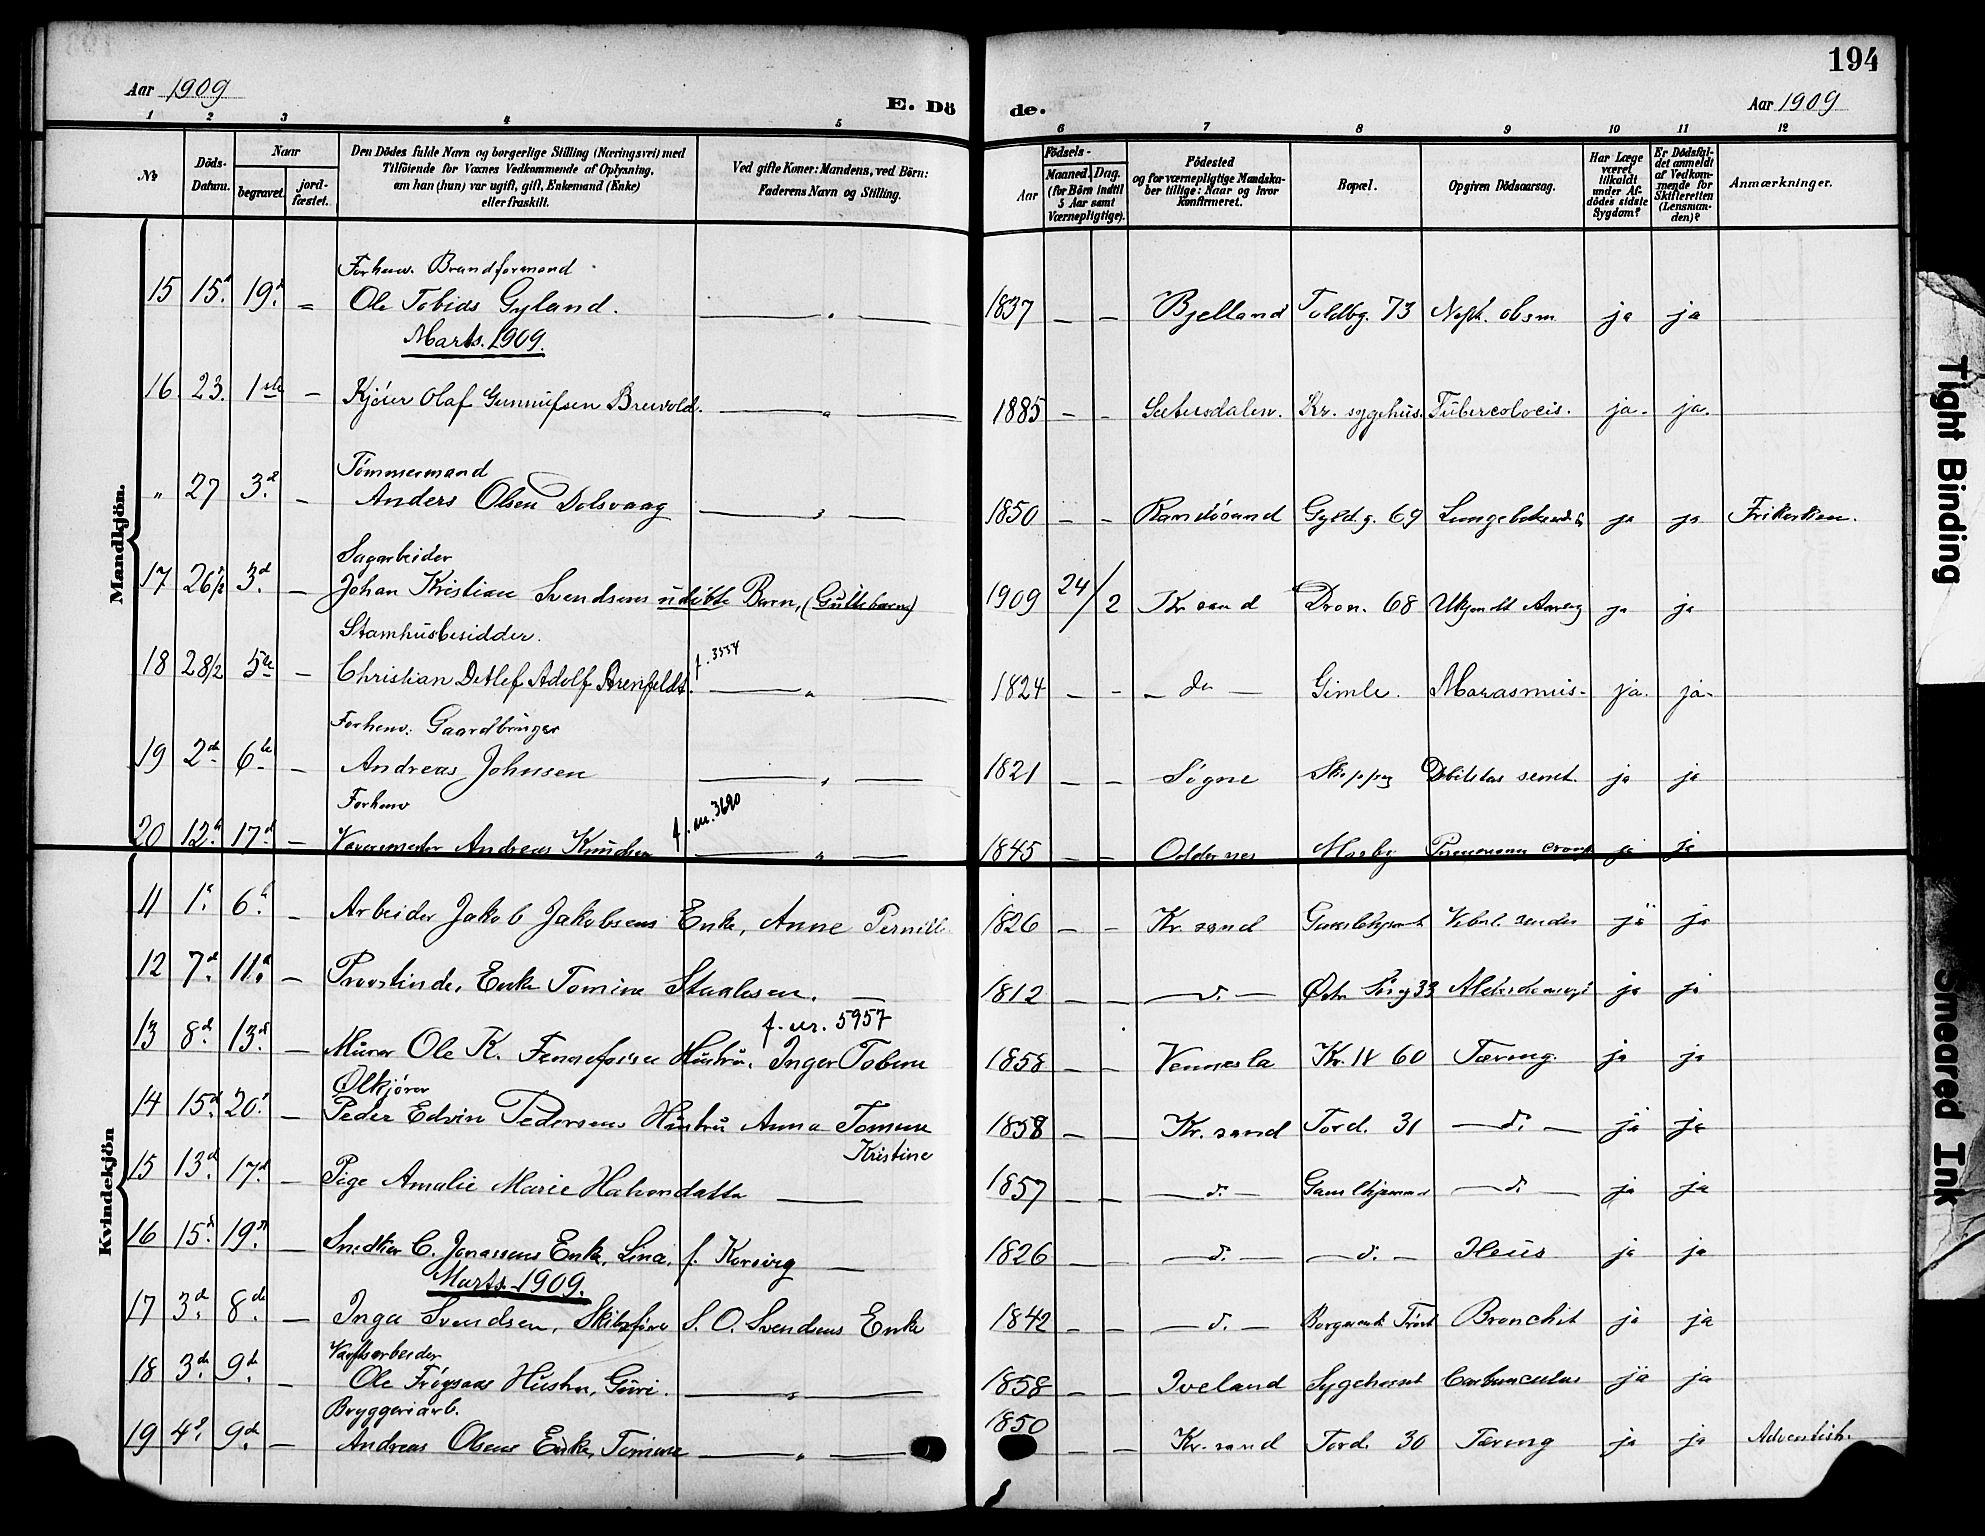 194
Aar 1909
E. Dö
de.
Aar 1909
1 2 3 4 5 6 7 8 9 10 11 12
No
Döds-
Datum.
Naar
begravet.
jord-
fæstet.
Den Dödes fulde Navn og borgerlige Stilling (Næringsvei) med
Tilföiende for Vaxnes Vedkommende af Oplysning,
om han (hun) var ugift, gift, Enkemand (Enke)
eller fraskilt.
Ved gifte Koner: Mandens, ved Börn:
Faderens Navn og Stilling.
Födsels-
Aar
Maaned. Dag.
(for Börn indtil
5 Aar samt
Værnepligtige).
Födested
og for værnepligtige Mandska-
ber tillige: Naar og hvor
konfirmeret.
Bopæl.
Opgiven Dödsaarsag.
Har Læge
været
tilkaldt
under Af-
dödes sidste
Sygdom?
Er Dödsfal-
det anmeldt
af Vedkom-
mende for
Skifteretten
(Lensman-
den)?
Anmærkninger.
Mandkjön.
Forhenv. Brandformand
15 15d. 19d. - Ole Tobias Gyland. — " — 1837 - - Bjelland Toldbg. 73 ja ja
Marts. 1909.
16. 23. 1ste - Kjører Olaf Gunnufsen Breivold. — " — 1885 - - Sætersdalen. Kr. sygehus. ja. ja.
Tömmermand
" 27 3d. - Anders Olsen Dolsvaag — " — 1850 - - Randøsund Gyld. g. 69 ja ja Frikirken.
Sagarbeider
17 26/2 3d. - Johan Kristian Svendsens udöbte Barn, (Guttebarn) 1909 24/2 Kr sand Dron. 68 Ukjendt Aarsag ja ja
Stamhusbesidder.
18 28/2 5te - Christian Detlef Adolf Arenfeldt. f. 3554 — " — 1824 - - - do - Gimle. Marasmus. ja. ja.
Forhenv. Gaardbruger
19 2den 6te - Andreas Johnsen — " — 1821 - - Søgne ja ja
Forhenv
20 12te 17de - Andreas Knudsen f. nr. 3690 — " — 1845 - - Oddernes Mosby ja ja
Kvindekjön
11 1. 6. - Arbeider Jakob Jakobsens Enke, Anne Pernille 1826 - - Kr. sand ja ja
12 7d. 11. - Provstinde, Enke Tomine Staalesen. — 1812 - - - d. - ja ja
f. nr. 5957
13 8d. 13d. - Murer Ole K. Hustru, Inger Tobine 1858 - - Vennesla Kr. IV 60 Tæring. ja ja
Ölkjører
14 15d. 20. - Peder Edvin Pedersens Hustru Anna Tomine 1858 - - Kr. sand Tord. 31 - d. - ja ja
Kristine
15 13d. 17d. - Pige Amalie Marie — 1857 - - - d. - - d. - ja ja
16 15d. 19d. - Snedker C. Jonassens Enke, Lina, f. Korsvig — 1826 - - - d. - - d. - Ileus ja ja
Marts. 1909.
17 3d. 8de. - Inga Svendsen, Skibsfører S. O. Svendsens Enke 1842 - - - d. - Bronchit ja ja
18 3de. 9de. - Ole Hustru, Guri. — " — 1858 - - Iveland Carbunculus ja ja
Bryggeriarb.
19 4d. 9de. - Andreas Olsens Enke, Tomine — " — 1850 - - Kr. sand Tord. 30 Tæring ja ja Adventist.
Tight Binding
Smeared Ink